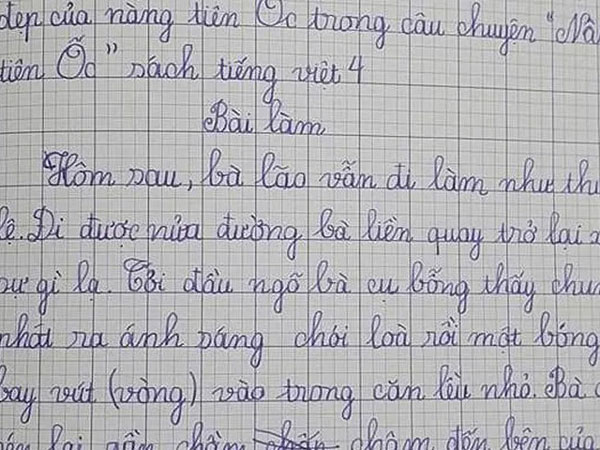 đẹp của nàng tiên Ốc trong câu chuyện "Nà
tiên Ốc" sách tiếng việt 4
Bài làm
Hôm sau, bà lão vẫn đi làm như thư
lệ. Đi được nửa đường bà liền quay trở lại
sự gì lạ. Tới đầu ngõ bà cụ bỗng thấy chu
phát ra ánh sáng chói loà rồi một bóng
bay vút (vòng) vào trong căn lều nhỏ. Bà
lại gần chầm chậm đến bên của